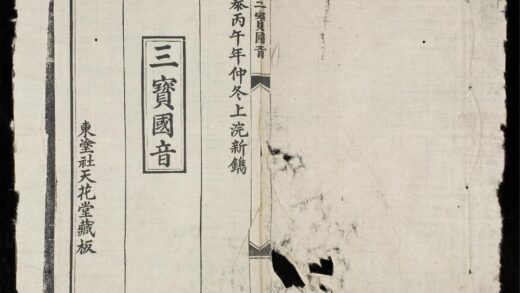 三寶國音
泰丙午年仲冬上浣新鐫
三寶國音
東塗社天花堂藏板